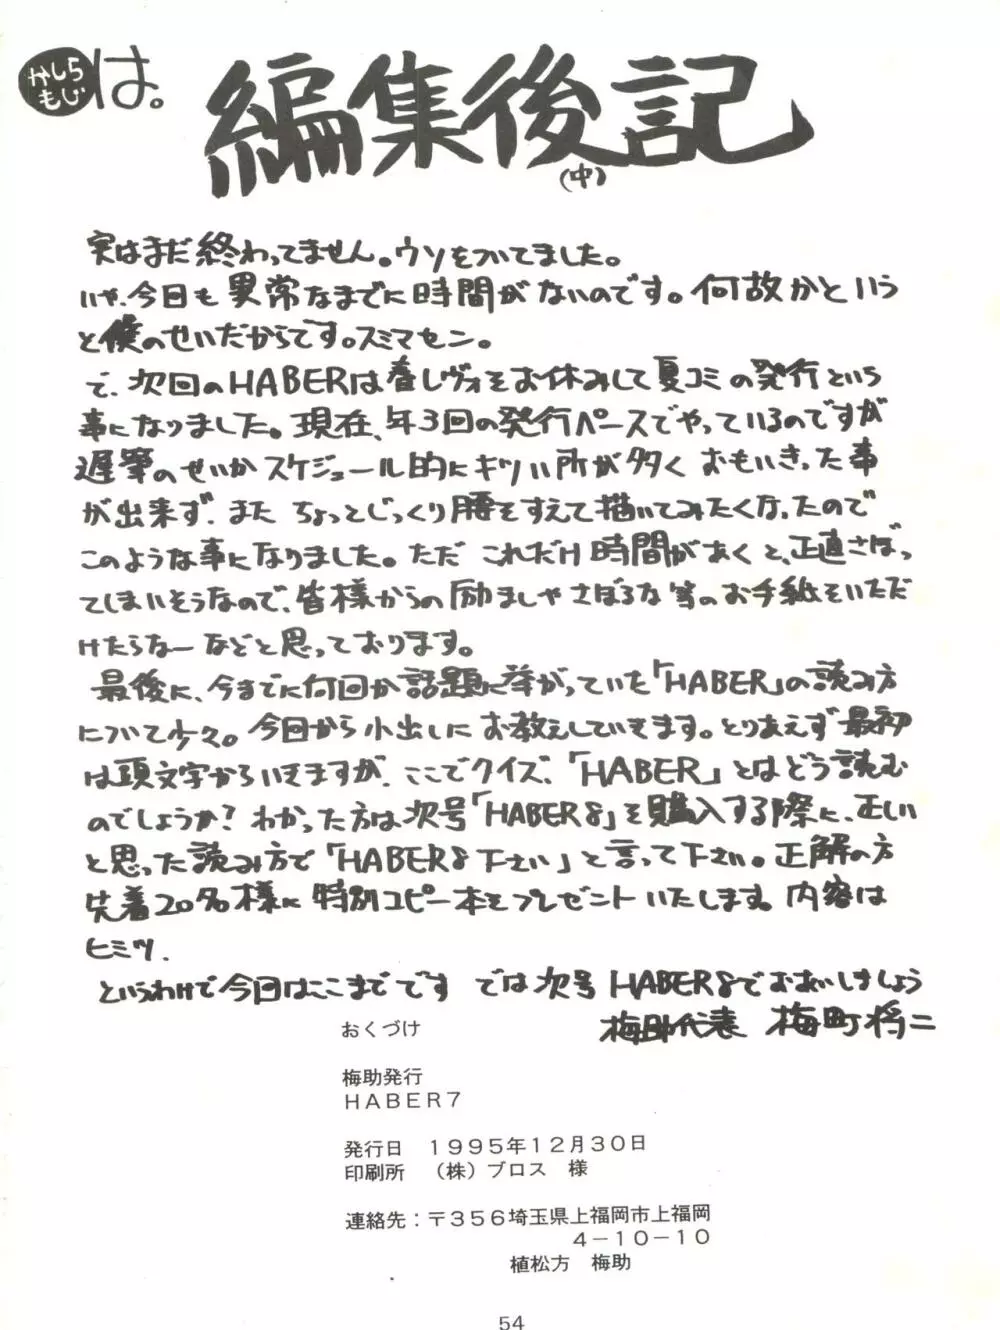 かしら
もじ
は。
編集後記
(中)
実はまだ終わってません。ウソをついてました。
いや、今日も異常なまでに時間がないのです。何故かという
と僕のせいだからです。スミマセン。
で、次回のHABERは春レヴォをお休みして夏コミの発行という
事になりました。現在、年3回の発行ペースでやっているのですが
遅筆のせいかスケジュール的にキツい所が多く おもいきった事
が出来ず、また ちょっとじっくり腰をすえて描いてみたくなったので
このような事になりました。ただ これだけ時間があくと、正直さぼっ
てしまいそうなので、皆様からの励ましやさぼるな等のお手紙をいただ
けたらなーなどと思っております。
最後に、今までに何回か話題に挙がっていた「HABER」の読み方
について少々。今回から小出しにお教えしていきます。とりあえず最初
は頭文字からいきますが、ここでクイズ、「HABER」とはどう読む
のでしょうか?わかった方は次号「HABER8」を購入する際に、正しい
と思った読み方で「HABER8下さい」と言って下さい。正解の方
先着20名様に特別コピー本をプレゼントいたします。内容は
ヒミツ.
というわけで今回はここまでです では次号HABER8でおあいしましょう
梅助代表 梅町将二
おくづけ
梅助発行
HABER7
発行日 1995年12月30日
印刷所 (株)ブロス 様
連絡先:〒356埼玉県上福岡市上福岡
4-10-10
植松方 梅助
54